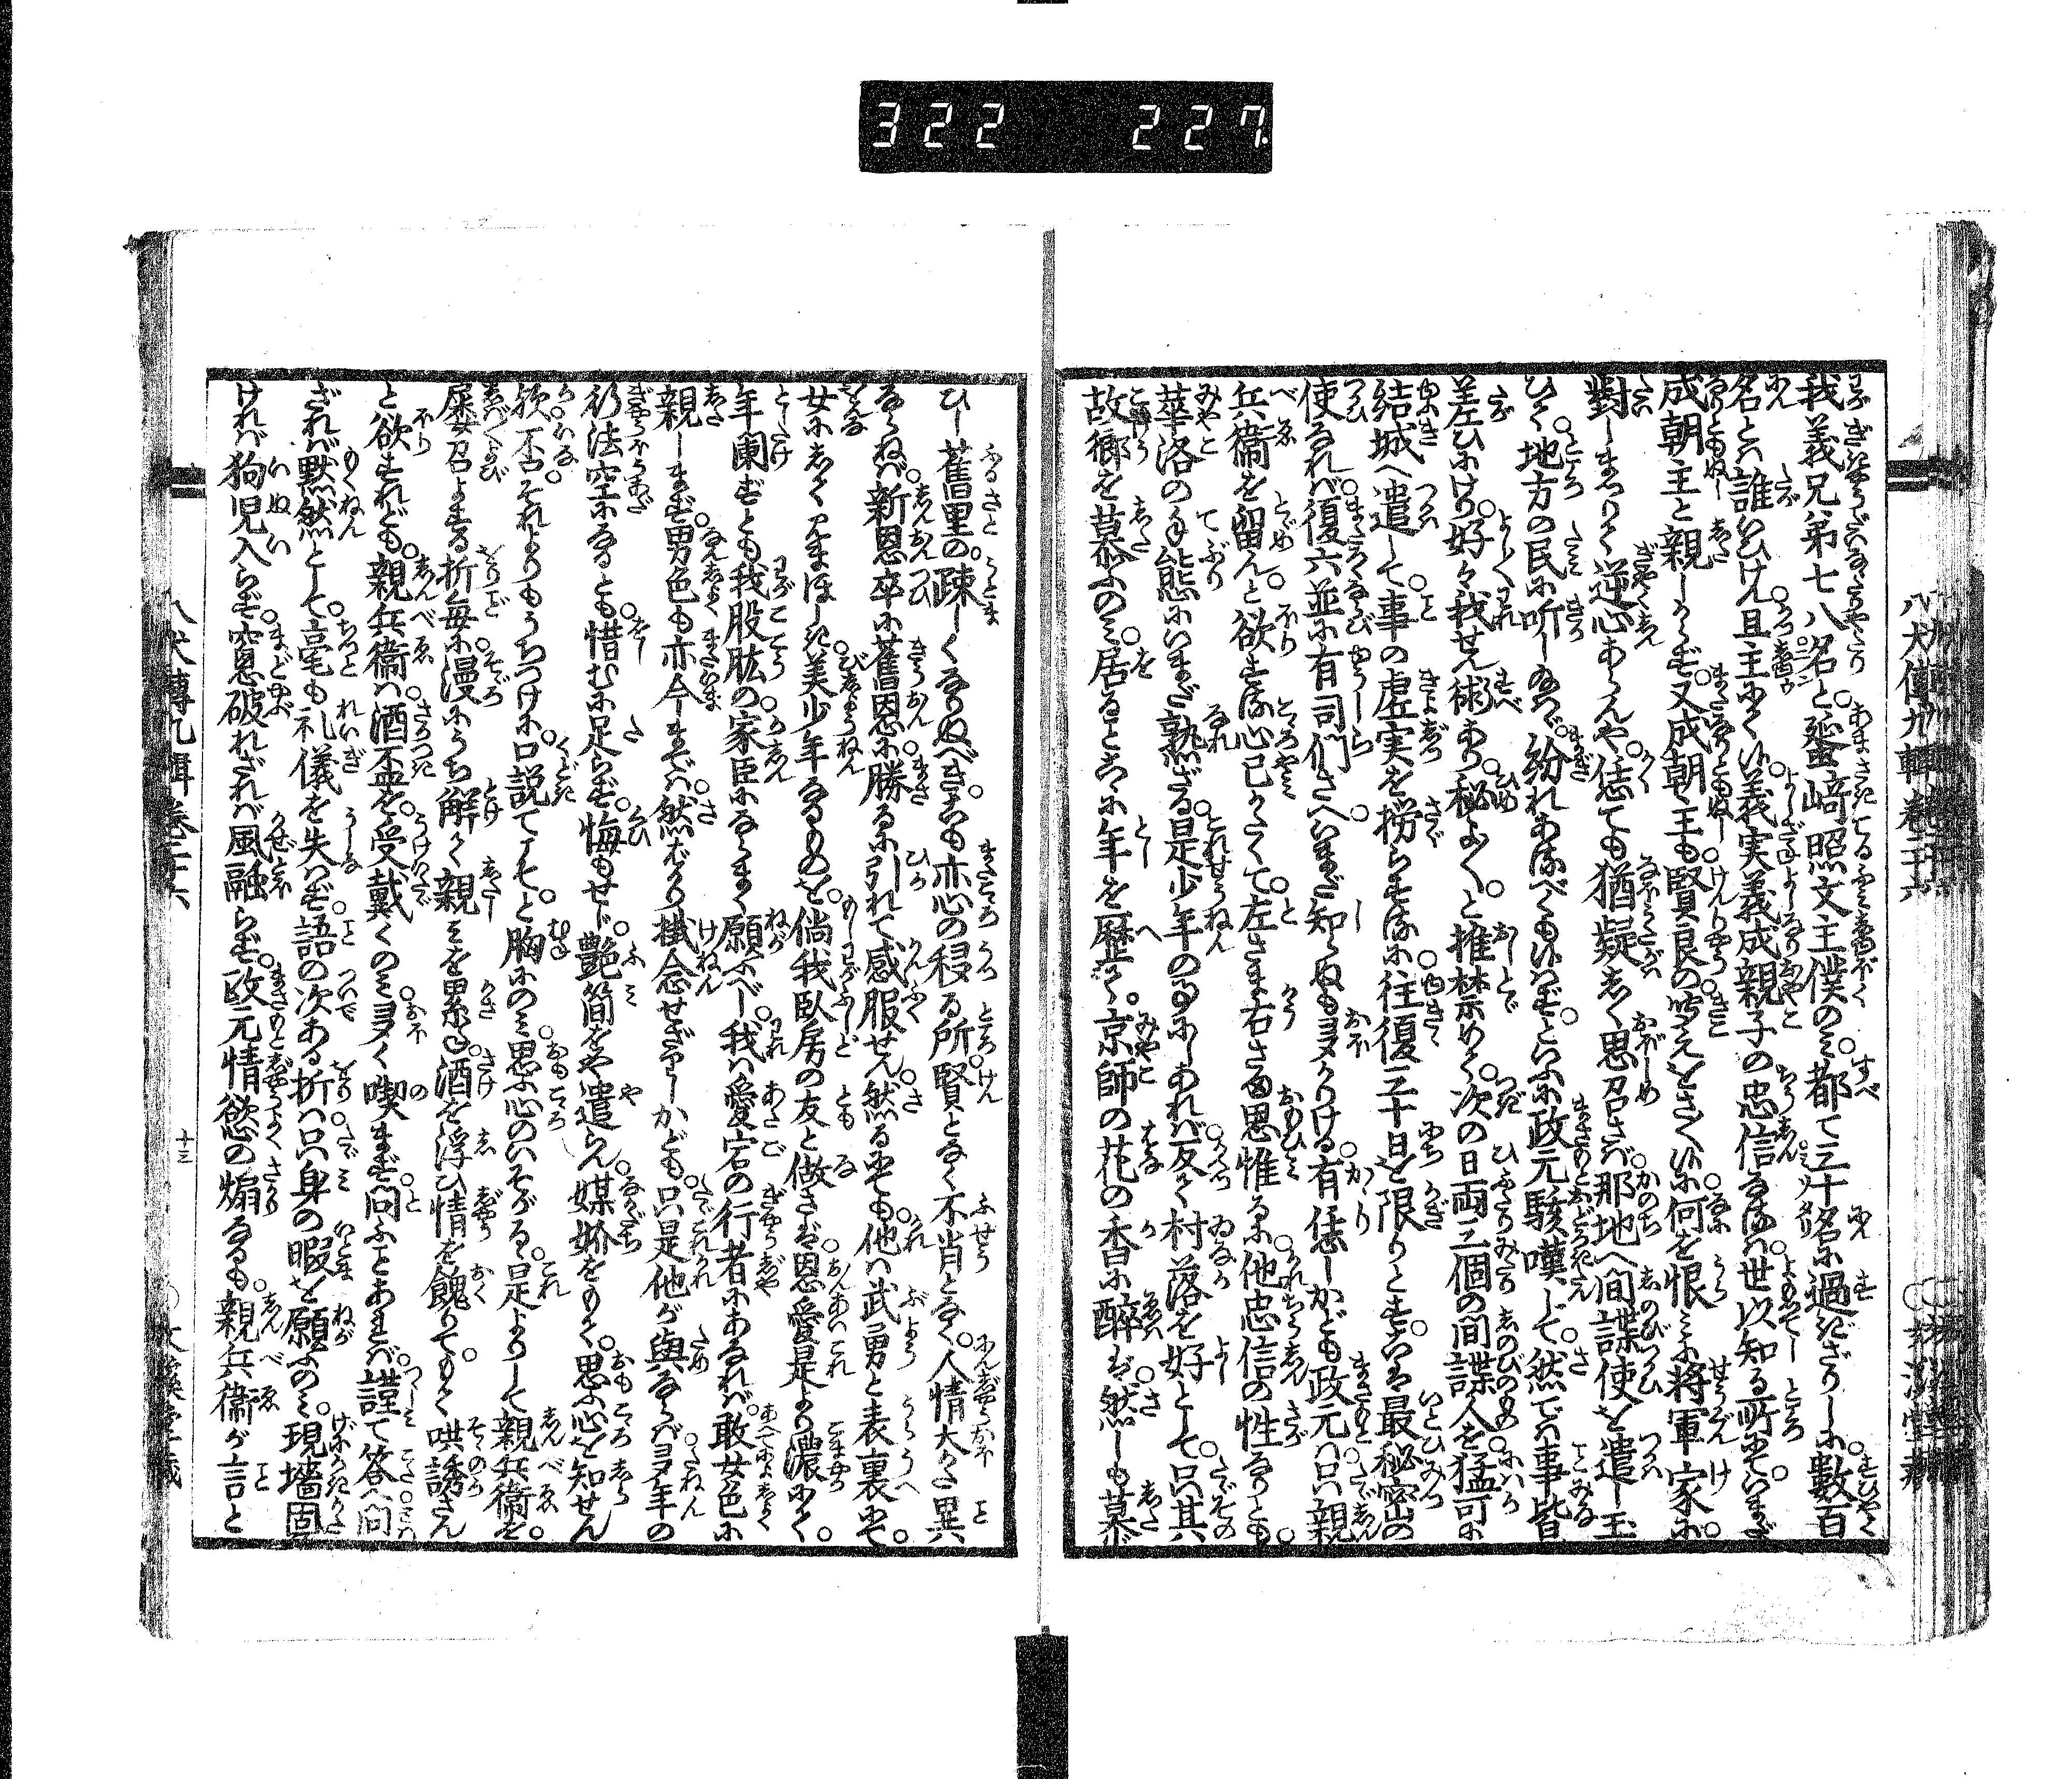 322 227
八犬傳九輯卷二十六
我義兄弟七八名と蜑﨑照文主僕のミ都て三十名に過ざりしに數百
名とハ誰かいひけん且主にて候義実義成親子の忠信なるハ世以知る所にていまだ
成朝主と親しからず又成朝主も賢良の聞えをさく候に何を恨ミ將軍家に
對しまつりて逆心あらんや恁ても猶疑しく思召さバ那地へ間諜使を遣し玉
ひて地方の民に听し給ハ紛れあるべくも候はずといふに政元駭嘆じて然でハ事皆
差ひにけり好々我せん術あり秘よくと推禁めて次の日両三個の間諜人を猛可に
結城へ遣して事の虚実を撈らするに往復三十日を限りとすこハ最秘密の
使なれバ復六並に有司們さへいまだ知らぬも多かりける有恁しかども政元ハ只親
兵衞を留んと欲する心已がたくて左さま右さま思惟るに他忠信の性なりとも
華洛の手態にいまだ熟ざる是少年の㕝にしあれバ反て村落を好として只其
故郷を慕ふのミ居ることこゝに年を歴て京師の花の香に醉バ然しも慕
ひし舊里の疎しくなりぬべきこも亦心の移る所賢となく不肖となく人情大かた異
ならねバ新恩卒に舊恩に勝るに引れて感服せん然るにても他ハ武勇と表裏にて
女にしてみまほしき美少年なるものを倘我臥房の友と做さバ恩愛是より濃にて
年闌ずとも我股肱の家臣にならまく願ふべし我ハ愛宕の行者にあなれバ敢女色に
親しまず男色も亦今までハ然ばかり掛念せざりしかども只是他が與ならバ多年の
行法空になるとも惜むに足らず悔もせじ艶簡をや遣らん媒妁をもて思ふ心を知せん
欤否それよりもうちつけに口説てこそと胸にのミ思ふ心のいそがるゝ是よりして親兵衞を
屢召よする折毎に漫にうち解て親ミを累ね酒を浮ひ情を餽りてもて哄誘さん
と欲すれども親兵衞ハ酒盃を受戴くのミ多く喫まず問ふことあれバ謹て答へ問
ざれバ默然として毫も礼儀を失ハず語の次ある折ハ只身の暇を願ふのミ現墻固
けれバ狗児入らず窓破れざれバ風融らず政元情慾の熾なるも親兵衞が言と
八犬傳九輯卷二十六
十三